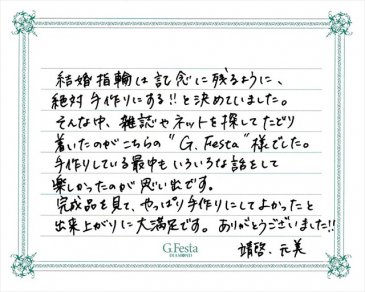 結婚指輪は記念に残るように、
絶対手作りにする!!と決めていました。
そんな中、雑誌やネットを探してたどり
着いたのがこちらの"G. Festa"様でした。
手作りしている最中もいろいろな話をして
楽しかったのが思い出です。
完成品を見て、やっぱり手作りにしてよかったと
出来上がりに大満足です。ありがとうございました!!
G.Festa
DIAMOND
靖啓、元美